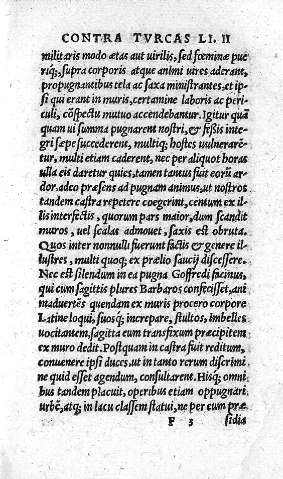 CONTRA TVRCAS LI. II
militaris modo ætas aut uirilis, sed fœminæ pue
riq;, supra corporis atque animi uires aderant,
propugnantibus tela ac saxa ministrantes, et ip
si qui erant in muris, certamine laboris ac peri
culi, cōspectu mutuo accendebantur. Igitur quā
quam ui summa pugnarent nostri, & fessis inte
gri sæpe succederent, multiq; hostes vulnerarē
tur, multi etiam caderent, nec per aliquot horas
ulla eis daretur quies, tamen tantus fuit eorū ar
dor. adeo præsens ad pugnam animus, ut nostros
tandem castra repetere coegerint, centum ex il
lis interfectis, quorum pars maior, dum scandit
muros, uel scalas admouet, saxis est obruta.
Quos inter nonnulli fuerunt factis & genere il
lustres, multi quoq; ex prælio saucij discessere.
Nec est silendum in ea pugna Goffredi facinus,
qui cum sagittis plures Barbaros confecisset, ani
maduertēs quendam ex muris procero corpore
Latine loqui, suosq; increpare, stultos, imbelles
uocitantem, sagitta eum transfixum præcipitem
ex muro dedit. Postquam in castra fuit reditum,
conuenere ipsi duces, ut in tanto rerum discrimi
ne quid esset agendum, consultarent. Hisq; omni
bus tandem placuit, operibus etiam oppugnari
urbē, atq; in lacu classem statui, ne per eum præ
F 3 sidia